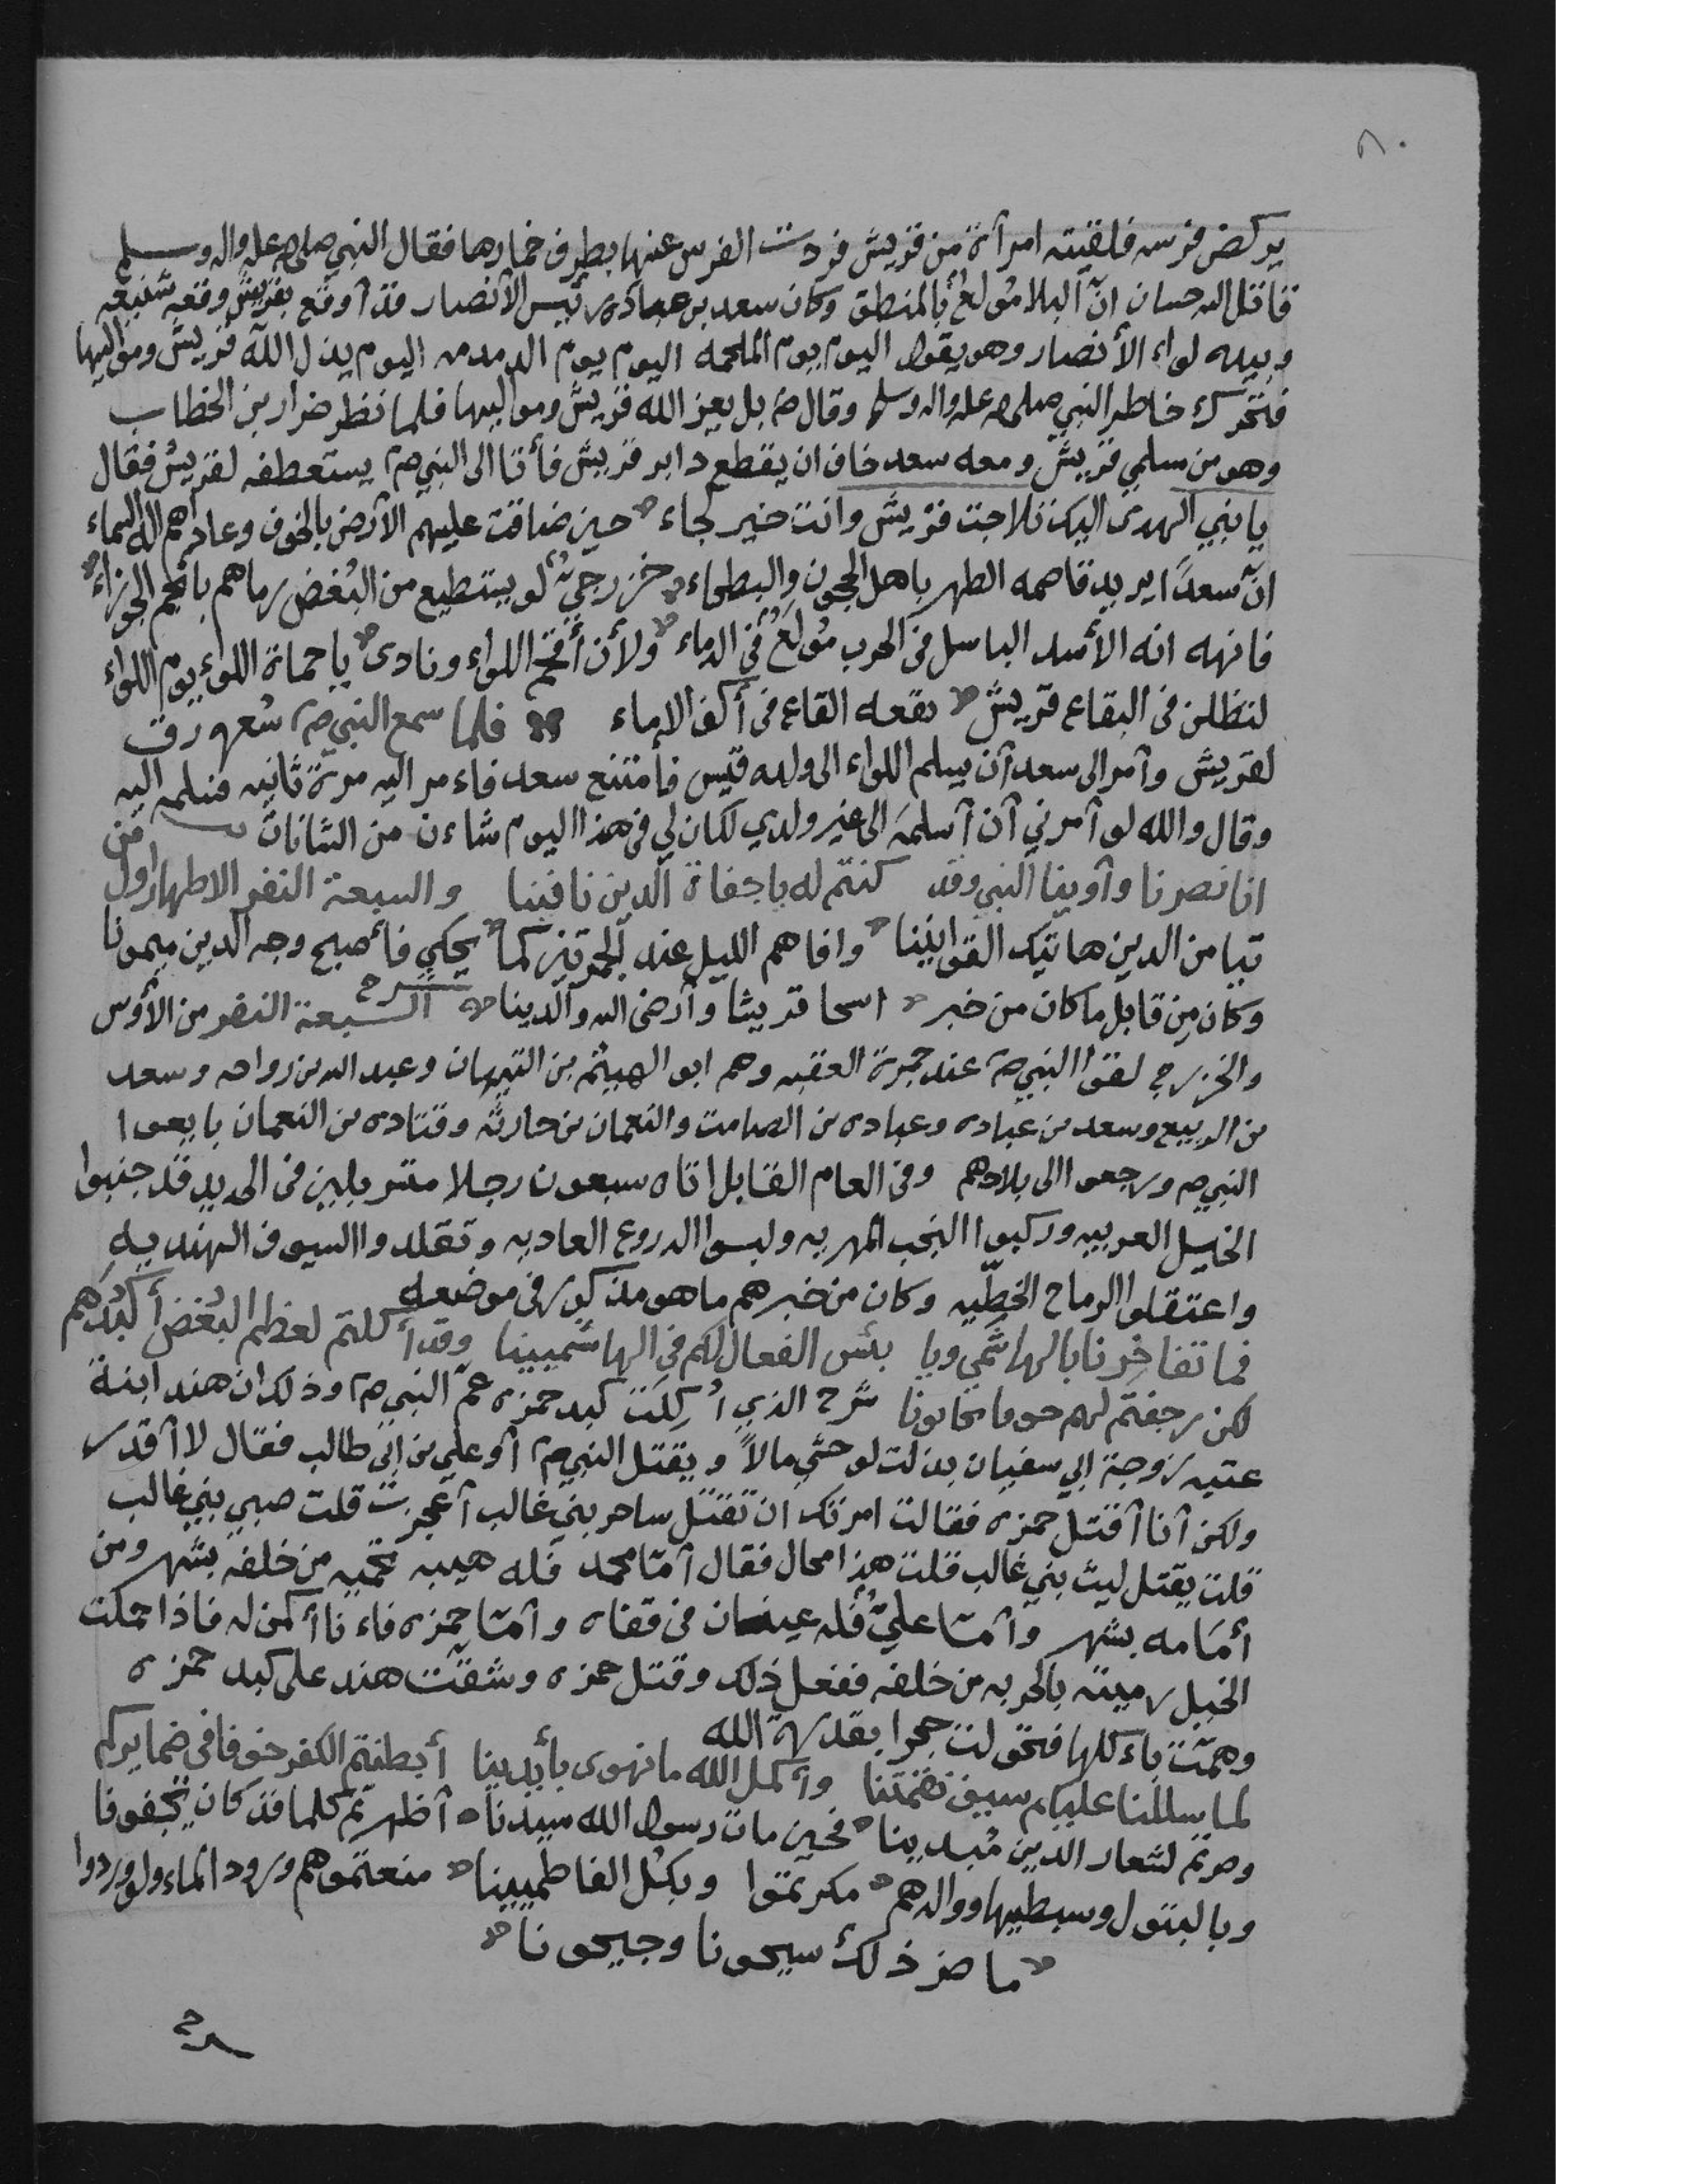 ٨٠
يركض فرسه فلقيته امرآة من قريش فردت الفرس عنها بطرف خمارها فقال النبي صلى الله عليه واله وسلم
قاتل الله حسان انّ البلا مُولعٌ بالمنطق وكان سعد بن عباده رئيس الأنصار قد آوقع بقريش وقعه شنيعه
وبيده لواء الأنصار وهو يقول اليوم يوم الملحمه اليوم يوم الدمدمه اليوم يذل الله قريش ومواليها
فتحرك خاطر النبي صلى الله عليه واله وسلم وقال صم بل يعز الله قريش ومواليها فلما نظر ضرار بن الخطاب
وهو من مسلمي قريش ومعه سعد خاف ان يقطع دابر قريش فأتا الى النبي صم يستعطفه لقريش فقال
يا نبي الهدى اليك تلاجت قريش وانت خير لجاء حين ضاقت عليهم الأرض بالخوف وعاداهم اله السماء
انّ سعدًا يريد قاصمه الظهر باهل الحجون والبطحاء خزرجيٌ لو يستطيع من البُغض رماهم بأنجم الجوزاء
فانهه انه الأسد الباسل فى الحرب مُولَعٌ في الدماء ولأن أقحم اللواء ونادى يا حماة اللواء يوم اللواء
لتظلن فى البقاع قريش بقعه القاع فى أكف الاماء فلما سمع النبي صم شعره رق
لقريش وآمر الى سعد آن يسلم اللواء الى ولده قيس فأمتنع سعد فاءمر اليه مرة ثانيه فسلمه اليه
وقال والله لو آمرني آن آسلمه الى غير ولدي لكان لي فى هذا اليوم شاءن من الشانات من
انا نصرنا وآوينا النبي وقد كنتم له يا جفاة الدين نافينا والسبعة النفر الاطهار اول
تبا من الدين هاتيك القوانينا وافاهم الليل عند الجمرتين كما يحكي فأصبح وجه الدين ميمونا
وكان مِن قابل ما كان من خبر اسحا قريشا وآرضى الله والدينا الشرح السبعة النفر من الأوس
والخزرج لقوا النبي صم عند جمرة العقبه وهم ابو الهيثم بن التيهان وعبد الله بن رواحه وسعد
بن الربيع وسعد بن عباده وعباده بن الصامت والنعمان بن حارثه وقتاده بن النعمان بايعوا
النبي صم ورجعوا الى بلادهم وفى العام القابل اتاه سبعون رجلا متسربلين فى الحديد قد جنبوا
الخيل العربيه وركبوا النجب المهريه ولبسوا الدروع العاديه وتقلدوا السيوف الهنديه
واعتقلوا الرماح الخطّيه وكان من خبرهم ما هو مذكور فى موضعه
فما تفاخرنا بالهاشمي ويا بئس الفعال لكم فى الهاشميينا وقد أكلتم لعظم البُغض أكبدَهم
لكن رجفتم لهم خوفا تخافونا شرح الذي أُكِلَت كبد حمزه عمّ النبي صم وذلك ان هند ابنة
عتبه زوجة ابي سفيان بذلت لوحشي مالاً ويقتل النبي صم آو علي بن ابى طالب فقال لا آقدر
ولكن آنا آقتل حمزه فقالت امرتك ان تقتل ساحر بني غالب آعجزت قلت صبي بني غالب
قلت يقتل ليث بني غالب قلت هذا محال فقال آمّا محمد فله هيبه تحميه من خلفه بشهر ومن
أمَامه بشهر وآمّا عليٌ فله عينان فى قفاه وآمّا حمزه فاءنا أكمن له فاذا حملت
الخيل رميته بالحربه من خلفه ففعل ذلك وقتل حمزه وشقّت هند على كبد حمزه
وهمّت باءكلها فتحولت حجرا بقدرة الله
لما سللنا عليكم سيف نقمتنا وأكمل الله ما نهوى بأيدينا أبطنتم الكفر خوفا فى ضمايركم
وصرتم لشعار الدين مُبدينا فحين مات رسول الله سيدنا آظهرتم كلما قد كان تخفونا
وبالبتول وسبطيها ووالدهم مكرتموا وبكل الفاطميينا منعتموهم ورود الماء ولو وردوا
ما ضر ذلك سيحونا وجيحونا
شرح